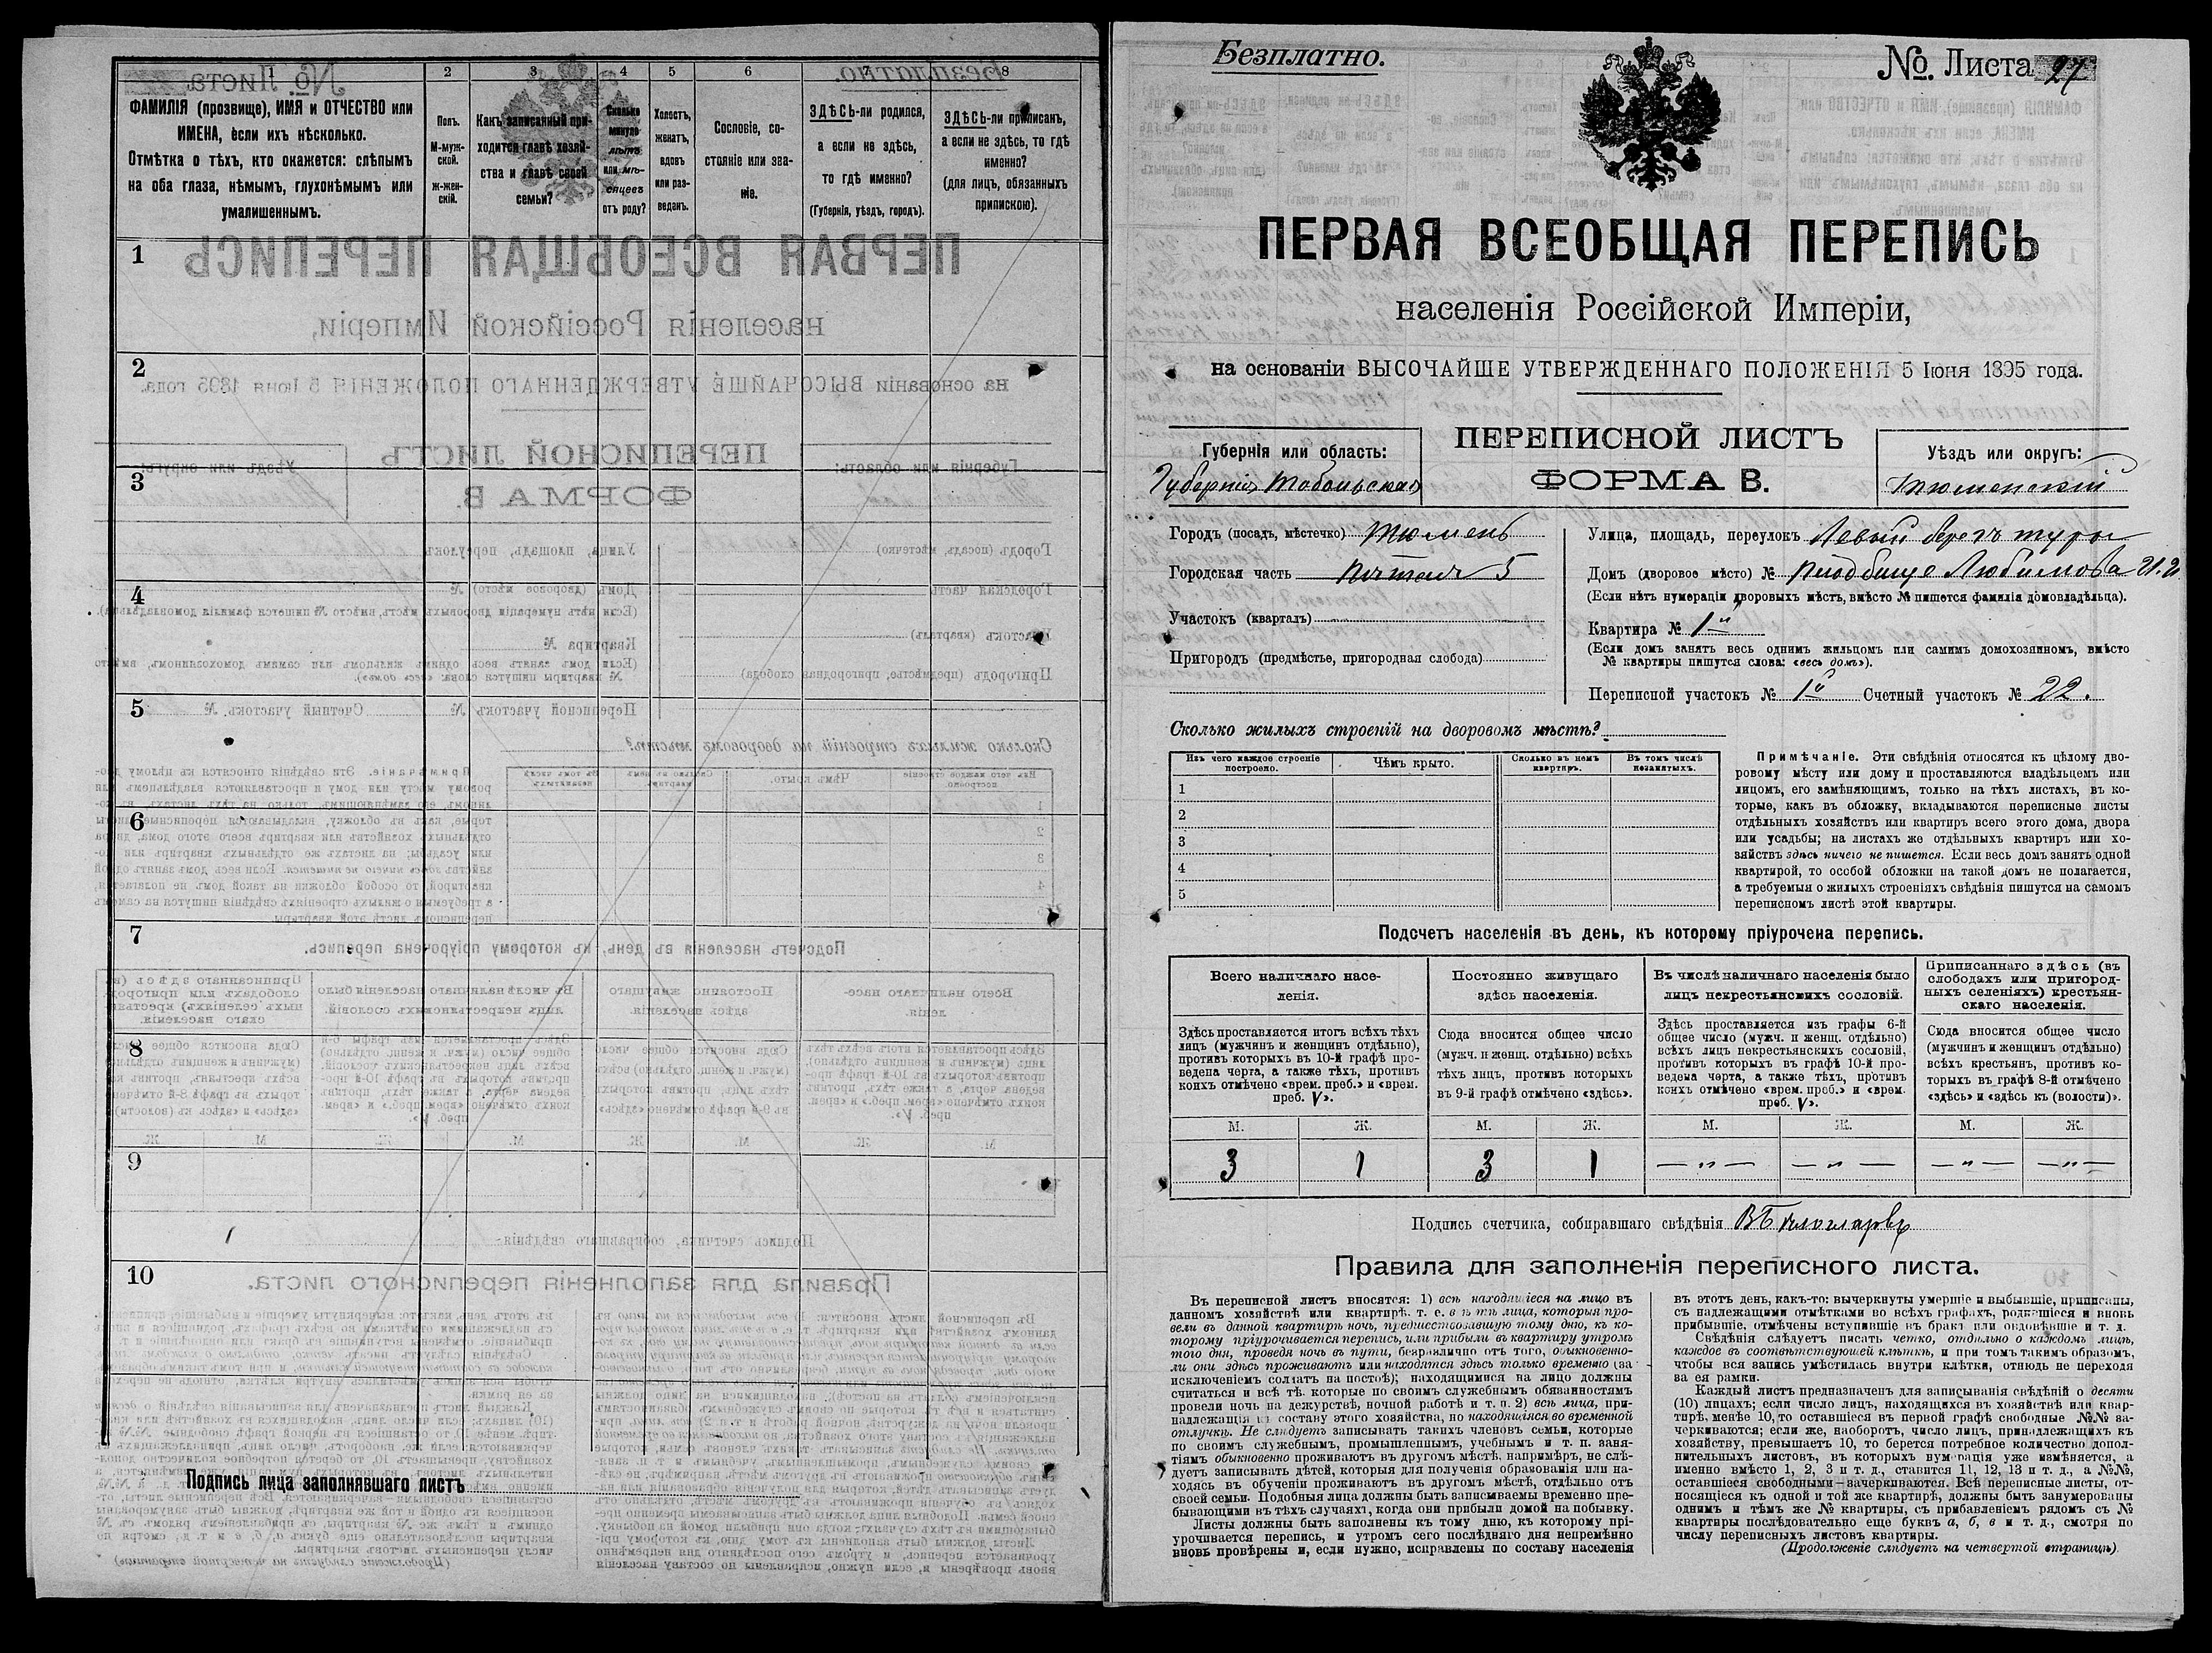 1
2
3
4
5
6
7
8
ФАМИЛІЯ (прозвище), ИМЯ и ОТЧЕСТВО или
ИМЕНА, если ихъ нѣсколько.
Отмѣтка о тѣхъ, кто окажется: слѣпымъ
на оба глаза, нѣмымъ, глухонѣмымъ или
умалишеннымъ.
Полъ.
М-муж-
ской.
ж-жен-
скій.
Какъ записанный при-
ходится главѣ хозяй-
ства и главѣ своей
семьи?
Сколько
минуло
лѣтъ
или мѣ-
сяцевъ
отъ роду?
Холостъ,
женатъ,
вдовъ
или раз-
веденъ.
Сословіе, со-
стояніе или зва-
ніе.
ЗДѢСЬ-ли родился,
а если не здѣсь,
то гдѣ именно?
(Губернія, уѣздъ, городъ).
ЗДѢСЬ-ли приписанъ,
а если не здѣсь, то гдѣ
именно?
(для лицъ, обязанныхъ
припискою).
1
2
3
4
5
6
7
8
9
10
Подпись лица заполнявшаго листъ
Безплатно.
№ Листа 27
ПЕРВАЯ ВСЕОБЩАЯ ПЕРЕПИСЬ
населенія Россійской Имперіи,
на основаніи ВЫСОЧАЙШЕ УТВЕРЖДЕННАГО ПОЛОЖЕНІЯ 5 Іюня 1895 года.
Губернія или область:
Губернія Тобольская
ПЕРЕПИСНОЙ ЛИСТЪ
ФОРМА В.
Уѣздъ или округъ:
Тюменскій
Городъ (посадъ, мѣстечко) Тюмень
Городская часть 5
Участокъ (кварталъ)
Пригородъ (предмѣстье, пригородная слобода)
Улица, площадь, переулокъ Левый берегъ туры
Домъ (дворовое мѣсто) № Любимова
(Если нѣтъ нумераціи дворовыхъ мѣстъ, вмѣсто № пишется фамилія домовладѣльца).
Квартира № 1
(Если домъ занятъ весь однимъ жильцомъ или самимъ домохозяиномъ, вмѣсто
№ квартиры пишутся слова: «весь домъ»).
Переписной участокъ № 1й Счетный участокъ № 22.
Сколько жилыхъ строеній на дворовомъ мѣстѣ?
Изъ чего каждое строеніе
построено.
Чѣмъ крыто.
Сколько въ немъ
квартиръ.
Въ томъ числѣ
незанятыхъ.
1
2
3
4
5
Примѣчаніе. Эти свѣдѣнія относятся къ цѣлому дво-
ровому мѣсту или дому и проставляются владѣльцемъ или
лицомъ, его замѣняющимъ, только на тѣхъ листахъ, въ ко-
торые, какъ въ обложку, вкладываются переписные листы
отдѣльныхъ хозяйствъ или квартиръ всего этого дома, двора
или усадьбы; на листахъ же отдѣльныхъ квартиръ или хо-
зяйствъ здѣсь ничего не пишется. Если весь домъ занятъ одной
квартирой, то особой обложки на такой домъ не полагается,
а требуемыя о жилыхъ строеніяхъ свѣдѣнія пишутся на самомъ
переписномъ листѣ этой квартиры.
Подсчетъ населенія въ день, къ которому пріурочена перепись.
Всего наличнаго насе-
ленія.
Постоянно живущаго
здѣсь населенія.
Въ числѣ наличнаго населенія было
лицъ некрестьянскихъ сословій.
Приписаннаго здѣсь (въ
слободахъ или пригород-
ныхъ селеніяхъ) крестьян-
скаго населенія.
Здѣсь проставляется итогъ всѣхъ тѣхъ
лицъ (мужчинъ и женщинъ отдѣльно),
противъ которыхъ въ 10-й графѣ про-
ведена черта, а также тѣхъ, противъ
коихъ отмѣчено «врем. преб.» и «врем.
преб. V».
Сюда вносится общее число
(мужч. и женщ. отдѣльно) всѣхъ
тѣхъ лицъ, противъ которыхъ
въ 9-й графѣ отмѣчено «здѣсь».
Здѣсь проставляется изъ графы 6-й
общее число (мужч. и женщ. отдѣльно)
всѣхъ лицъ некрестьянскихъ сословій,
противъ которыхъ въ графѣ 10-й про-
ведена черта, а также тѣхъ, противъ
коихъ отмѣчено «врем. преб.» и «врем.
преб. V».
Сюда вносится общее число
(мужчинъ и женщинъ отдѣльно)
всѣхъ крестьянъ, противъ ко-
торыхъ въ графѣ 8-й отмѣчено
«здѣсь» и «здѣсь къ (волости)».
М. Ж. М. Ж. М. Ж. М. Ж.
3 1 3 1 — " — — " — — " — — " —
Подпись счетчика, собиравшаго свѣдѣнія
Правила для заполненія переписного листа.
Въ переписной листъ вносятся: 1) всѣ находящіеся на лицо въ
данномъ хозяйствѣ или квартирѣ, т. е. в ѣ тѣ лица, которыя про-
вели въ данной квартирѣ ночь, предшествовавшую тому дню, къ ко-
торому пріурочивается перепись, или прибыли въ квартиру утромъ
того дня, проведя ночь въ пути, безразлично отъ того, обыкновенно-
ли они здѣсь проживаютъ или находятся здѣсь только временно (за
исключеніемъ солдатъ на постоѣ); находящимися на лицо должны
считаться и всѣ тѣ, которые по своимъ служебнымъ обязанностямъ
провели ночь на дежурствѣ, ночной работѣ и т. п. 2) всѣ лица, при-
надлежащія къ составу этого хозяйства, но находящіяся во временной
отлучкѣ. Не слѣдуетъ записывать такихъ членовъ семьи, которые
по своимъ служебнымъ, промышленнымъ, учебнымъ и т. п. заня-
тіямъ обыкновенно проживаютъ въ другомъ мѣстѣ, напримѣръ, не слѣ-
дуетъ записывать дѣтей, которыя для полученія образованія или на-
ходясь въ обученіи проживаютъ въ другомъ мѣстѣ, отдѣльно отъ
своей семьи. Подобныя лица должны быть записываемы временно пре-
бывающими въ тѣхъ случаяхъ, когда они прибыли домой на побывку.
Листы должны быть заполнены къ тому дню, къ которому прі-
урочивается перепись, и утромъ сего послѣдняго дня непремѣнно
вновь провѣрены и, если нужно, исправлены по составу населенія
въ этотъ день, какъ-то: вычеркнуты умершіе и выбывшіе, приписаны,
съ надлежащими отмѣтками во всѣхъ графахъ, родившіеся и вновь
прибывшіе, отмѣчены вступившіе въ бракъ или овдовѣвшіе и т. д.
Свѣдѣнія слѣдуетъ писать четко, отдѣльно о каждомъ лицѣ,
каждое въ соотвѣтствующей клѣткѣ, и при томъ такимъ образомъ,
чтобы вся запись умѣстилась внутри клѣтки, отнюдь не переходя
за ея рамки.
Каждый листъ предназначенъ для записыванія свѣдѣній о десяти
(10) лицахъ; если число лицъ, находящихся въ хозяйствѣ или квар-
тирѣ, менѣе 10, то оставшіеся въ первой графѣ свободные №№ за-
черкиваются; если же, наоборотъ, число лицъ, принадлежащихъ къ
хозяйству, превышаетъ 10, то берется потребное количество допол-
нительныхъ листовъ, въ которыхъ нумерація уже измѣняется, а
именно вмѣсто 1, 2, 3 и т. д., ставится 11, 12, 13 и т. д., а №№,
оставшіеся свободными—зачеркиваются. Всѣ переписные листы, от-
носящіеся къ одной и той же квартирѣ, должны быть занумерованы
однимъ и тѣмъ же № квартиры, съ прибавленіемъ рядомъ съ №
квартиры послѣдовательно еще буквъ а, б, в и т. д., смотря по
числу переписныхъ листовъ квартиры.
(Продолженіе слѣдуетъ на четвертой страницѣ).